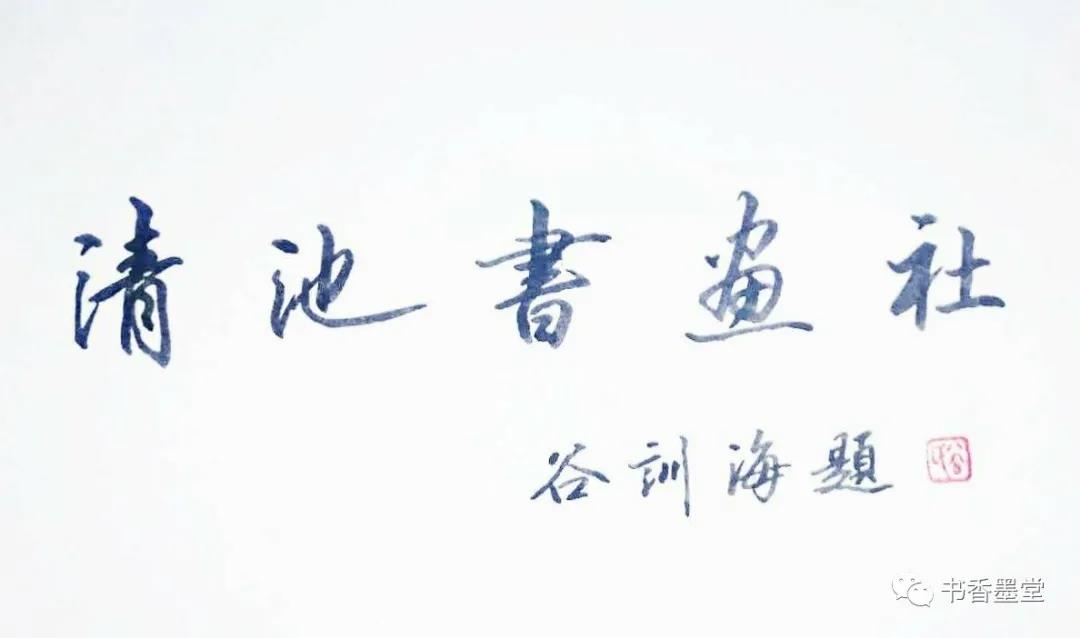 清池書画社
谷訓海題
书香墨堂